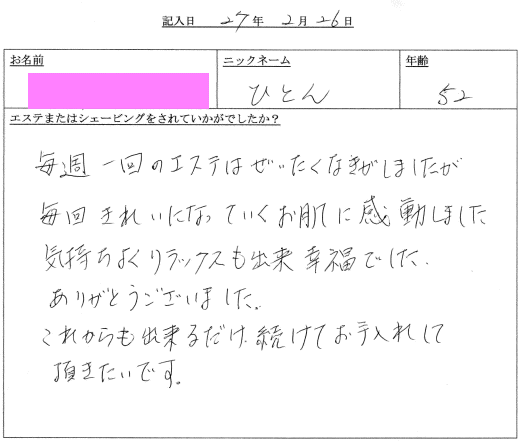 記入日 27年 2月 26日
お名前 ニックネーム 年齢
ひとん 52
エステまたはシェービングをされていかがでしたか？
毎週一回のエステはぜいたくなきがしましたが
毎回きれいになっていくお肌に感動しました
気持ちよくリラックスも出来幸福でした.
ありがとうございました.
これからも出来るだけ.続けてお手入れして
頂きたいです。